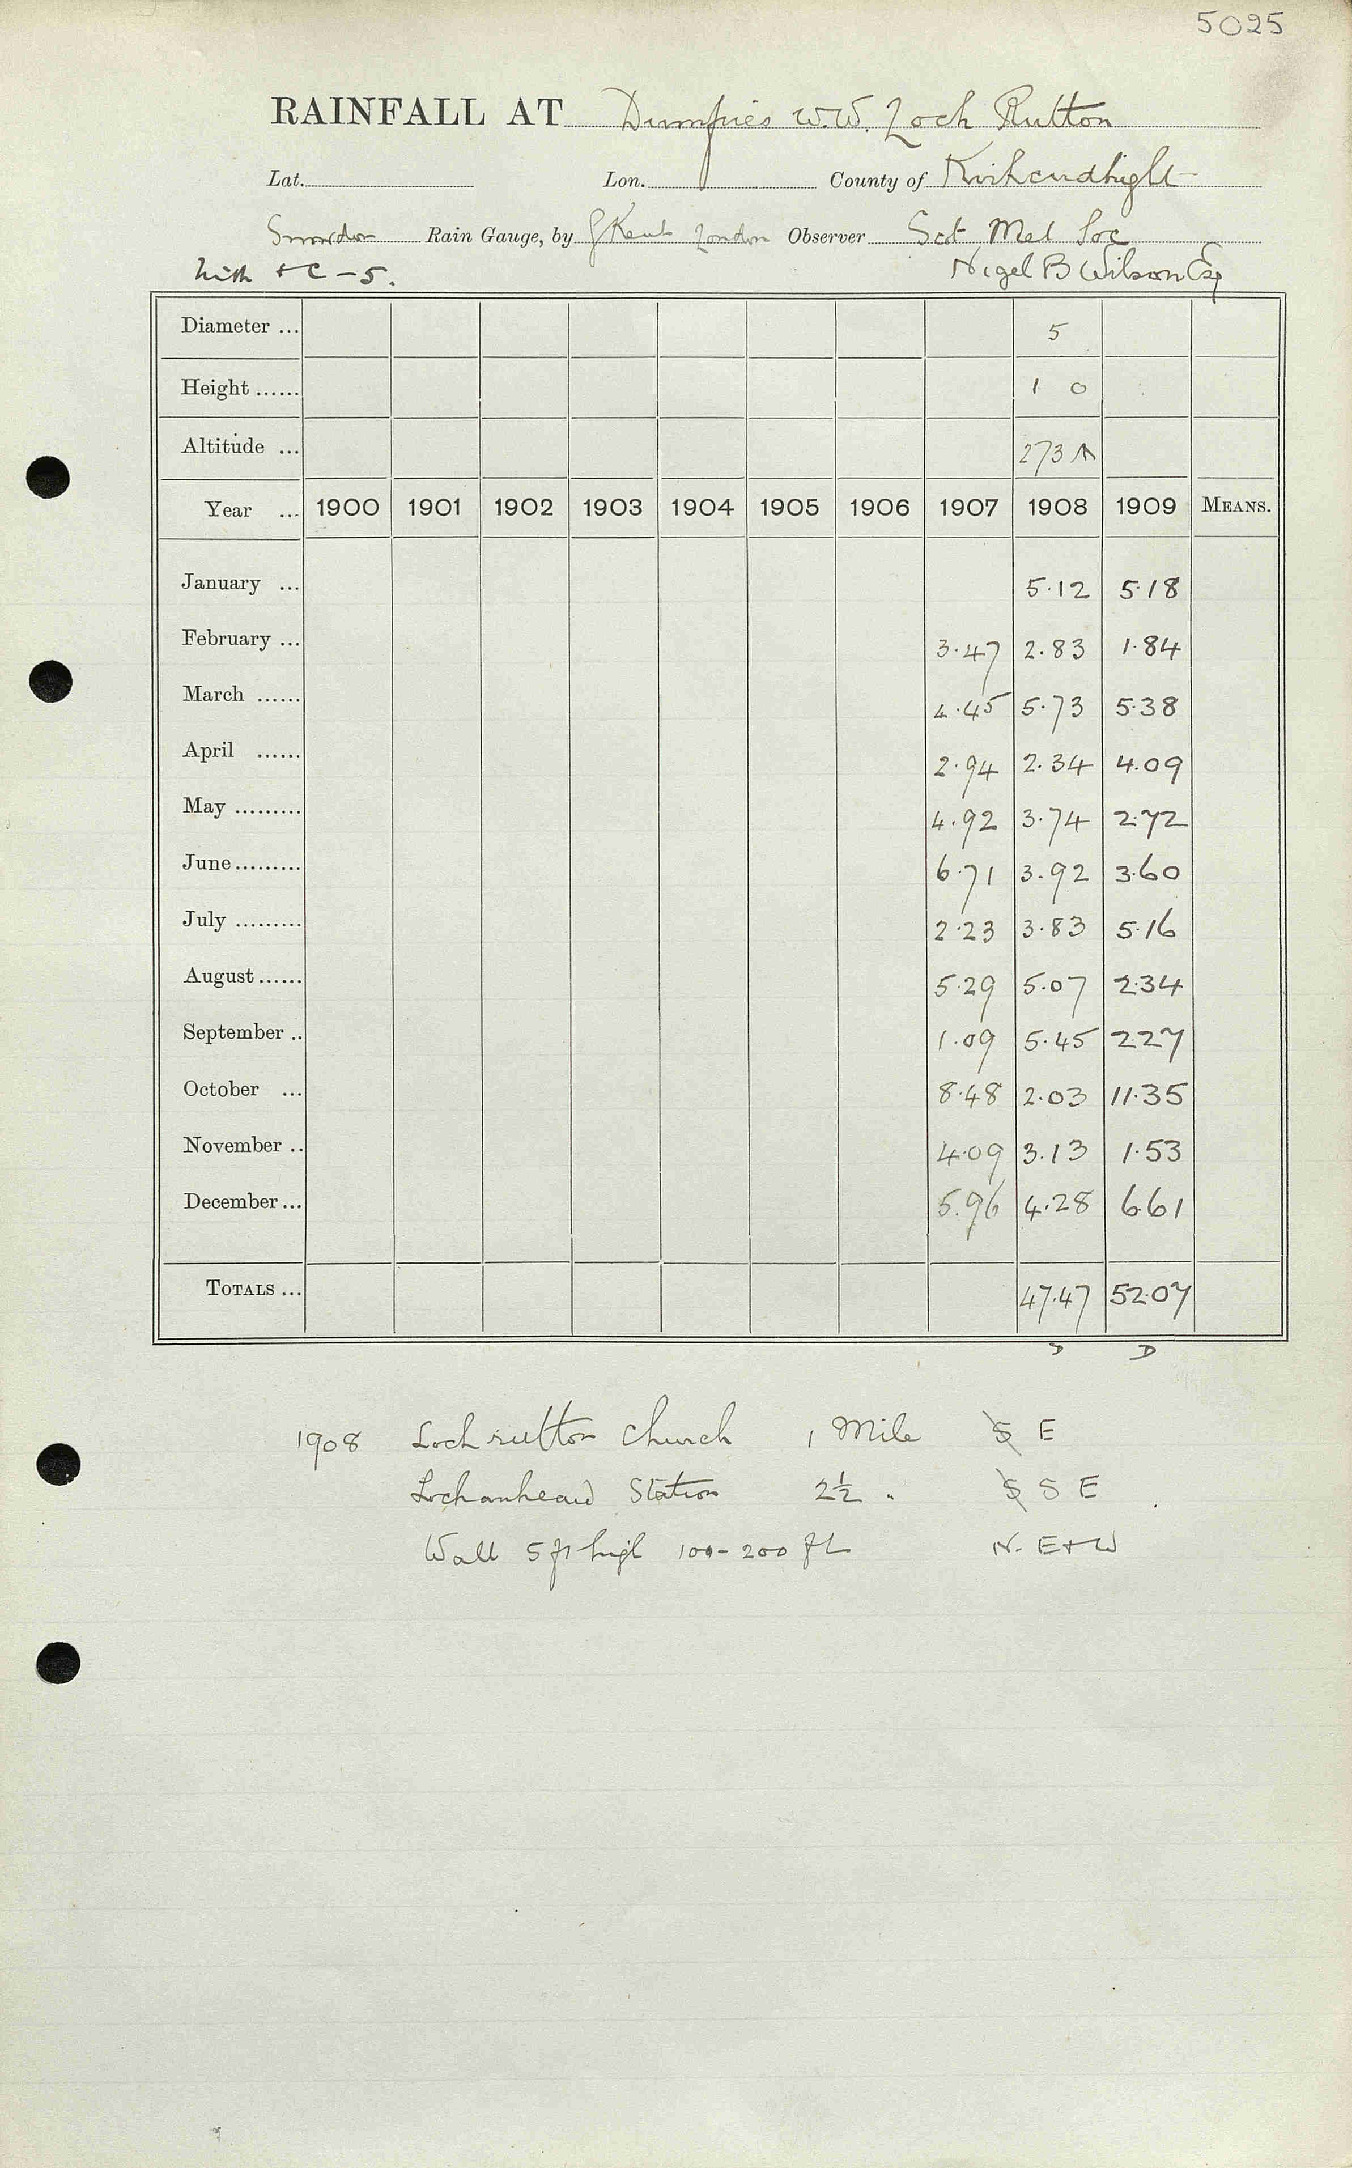 5025
RAINFALL AT Dumfries W.W. Loch Rutton
Lat. Lon. County of Kirkcudbright
Snowdon Rain Gauge, by J Kent London Observer Scot Met Soc
Nith + C - 5. Nigel B Wilson Esq
Diameter ... 5
Height ...... 1 0
Altitude ... 273
Year ... 1900 1901 1902 1903 1904 1905 1906 1907 1908 1909 MEANS.
January ... 5.12 5.18
February ... 3.47 2.83 1.84
March ...... 4.45 5.73 5.38
April ...... 2.94 2.34 4.09
May ......... 4.92 3.74 2.72
June......... 6.71 3.92 3.60
July ......... 2.23 3.83 5.16
August ...... 5.29 5.07 2.34
September .. 1.09 5.45 2.27
October ... 8.48 2.03 11.35
November .. 4.09 3.13 1.53
December... 5.96 4.28 6.61
TOTALS ... 47.47 52.07
D D
1908 Loch rutton church 1 Mile S E
Lochanhead Station 2½ " S S E
Wall 5 ft high 100-200 ft N. E+W